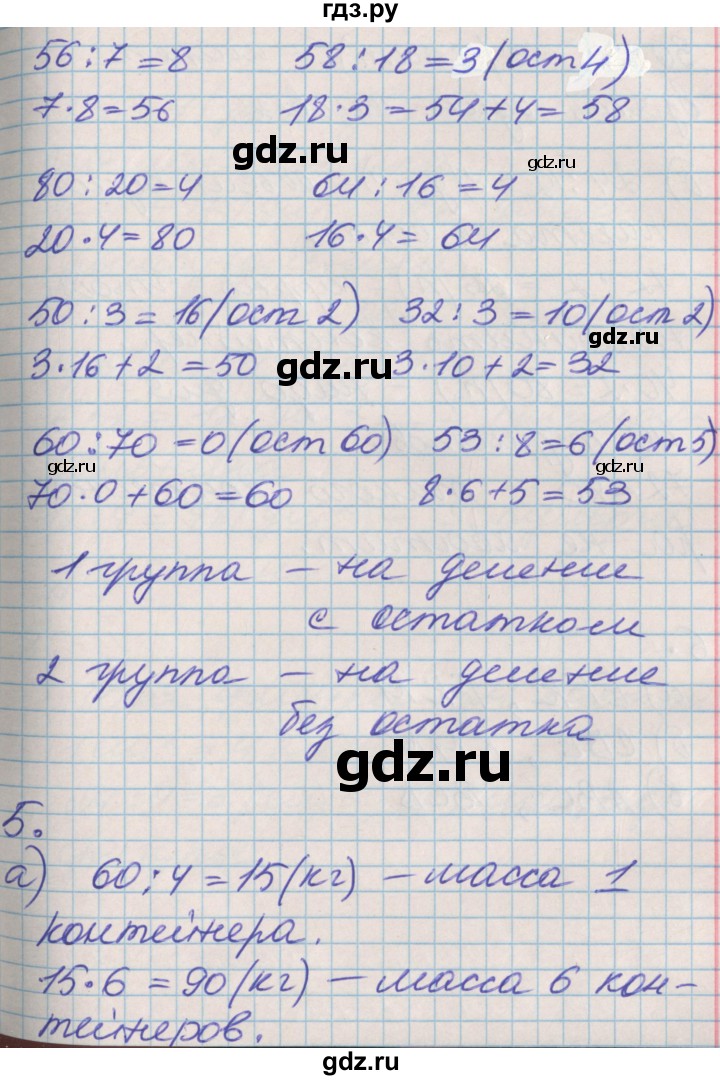 гдз.ру
56:7=8 58:18=3(ост 4)
7·8=56 18·3=54+4=58
gdz.ru
gdz.ru
80:20=4 64:16=4
20·4=80 16·4=64
50:3=16(ост 2) 32:3=10(ост 2)
gdz.ru
3·16+2=50 3·10+2=32
gdz.ru
60:70=0(ост 60) 53:8=6(ост 5)
gdz.ru
gdz.ru
70·0+60=60 8·6+5=53
1 группа – на деление
с остатком
2 группа – на деление
без остатка
gdz.ru
5.
а) 60:4=15(кг) – масса 1
контейнера.
15·6=90(кг) – масса 6 кон-
тейнеров.
gdz.ru